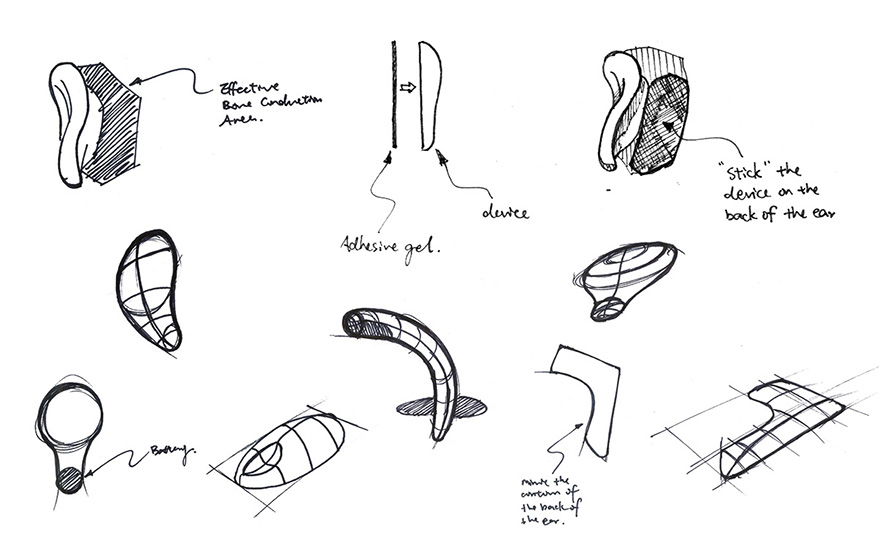 Effective
Bone Conduction
Area.
Adhesive gel.
device
"Stick" the
device on the
back of the ear
Battery.
mimic the
contour of
the back of
the ear.